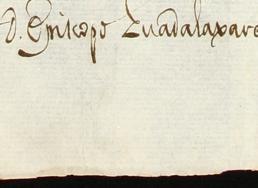 D. Episcopo Guadalaxare